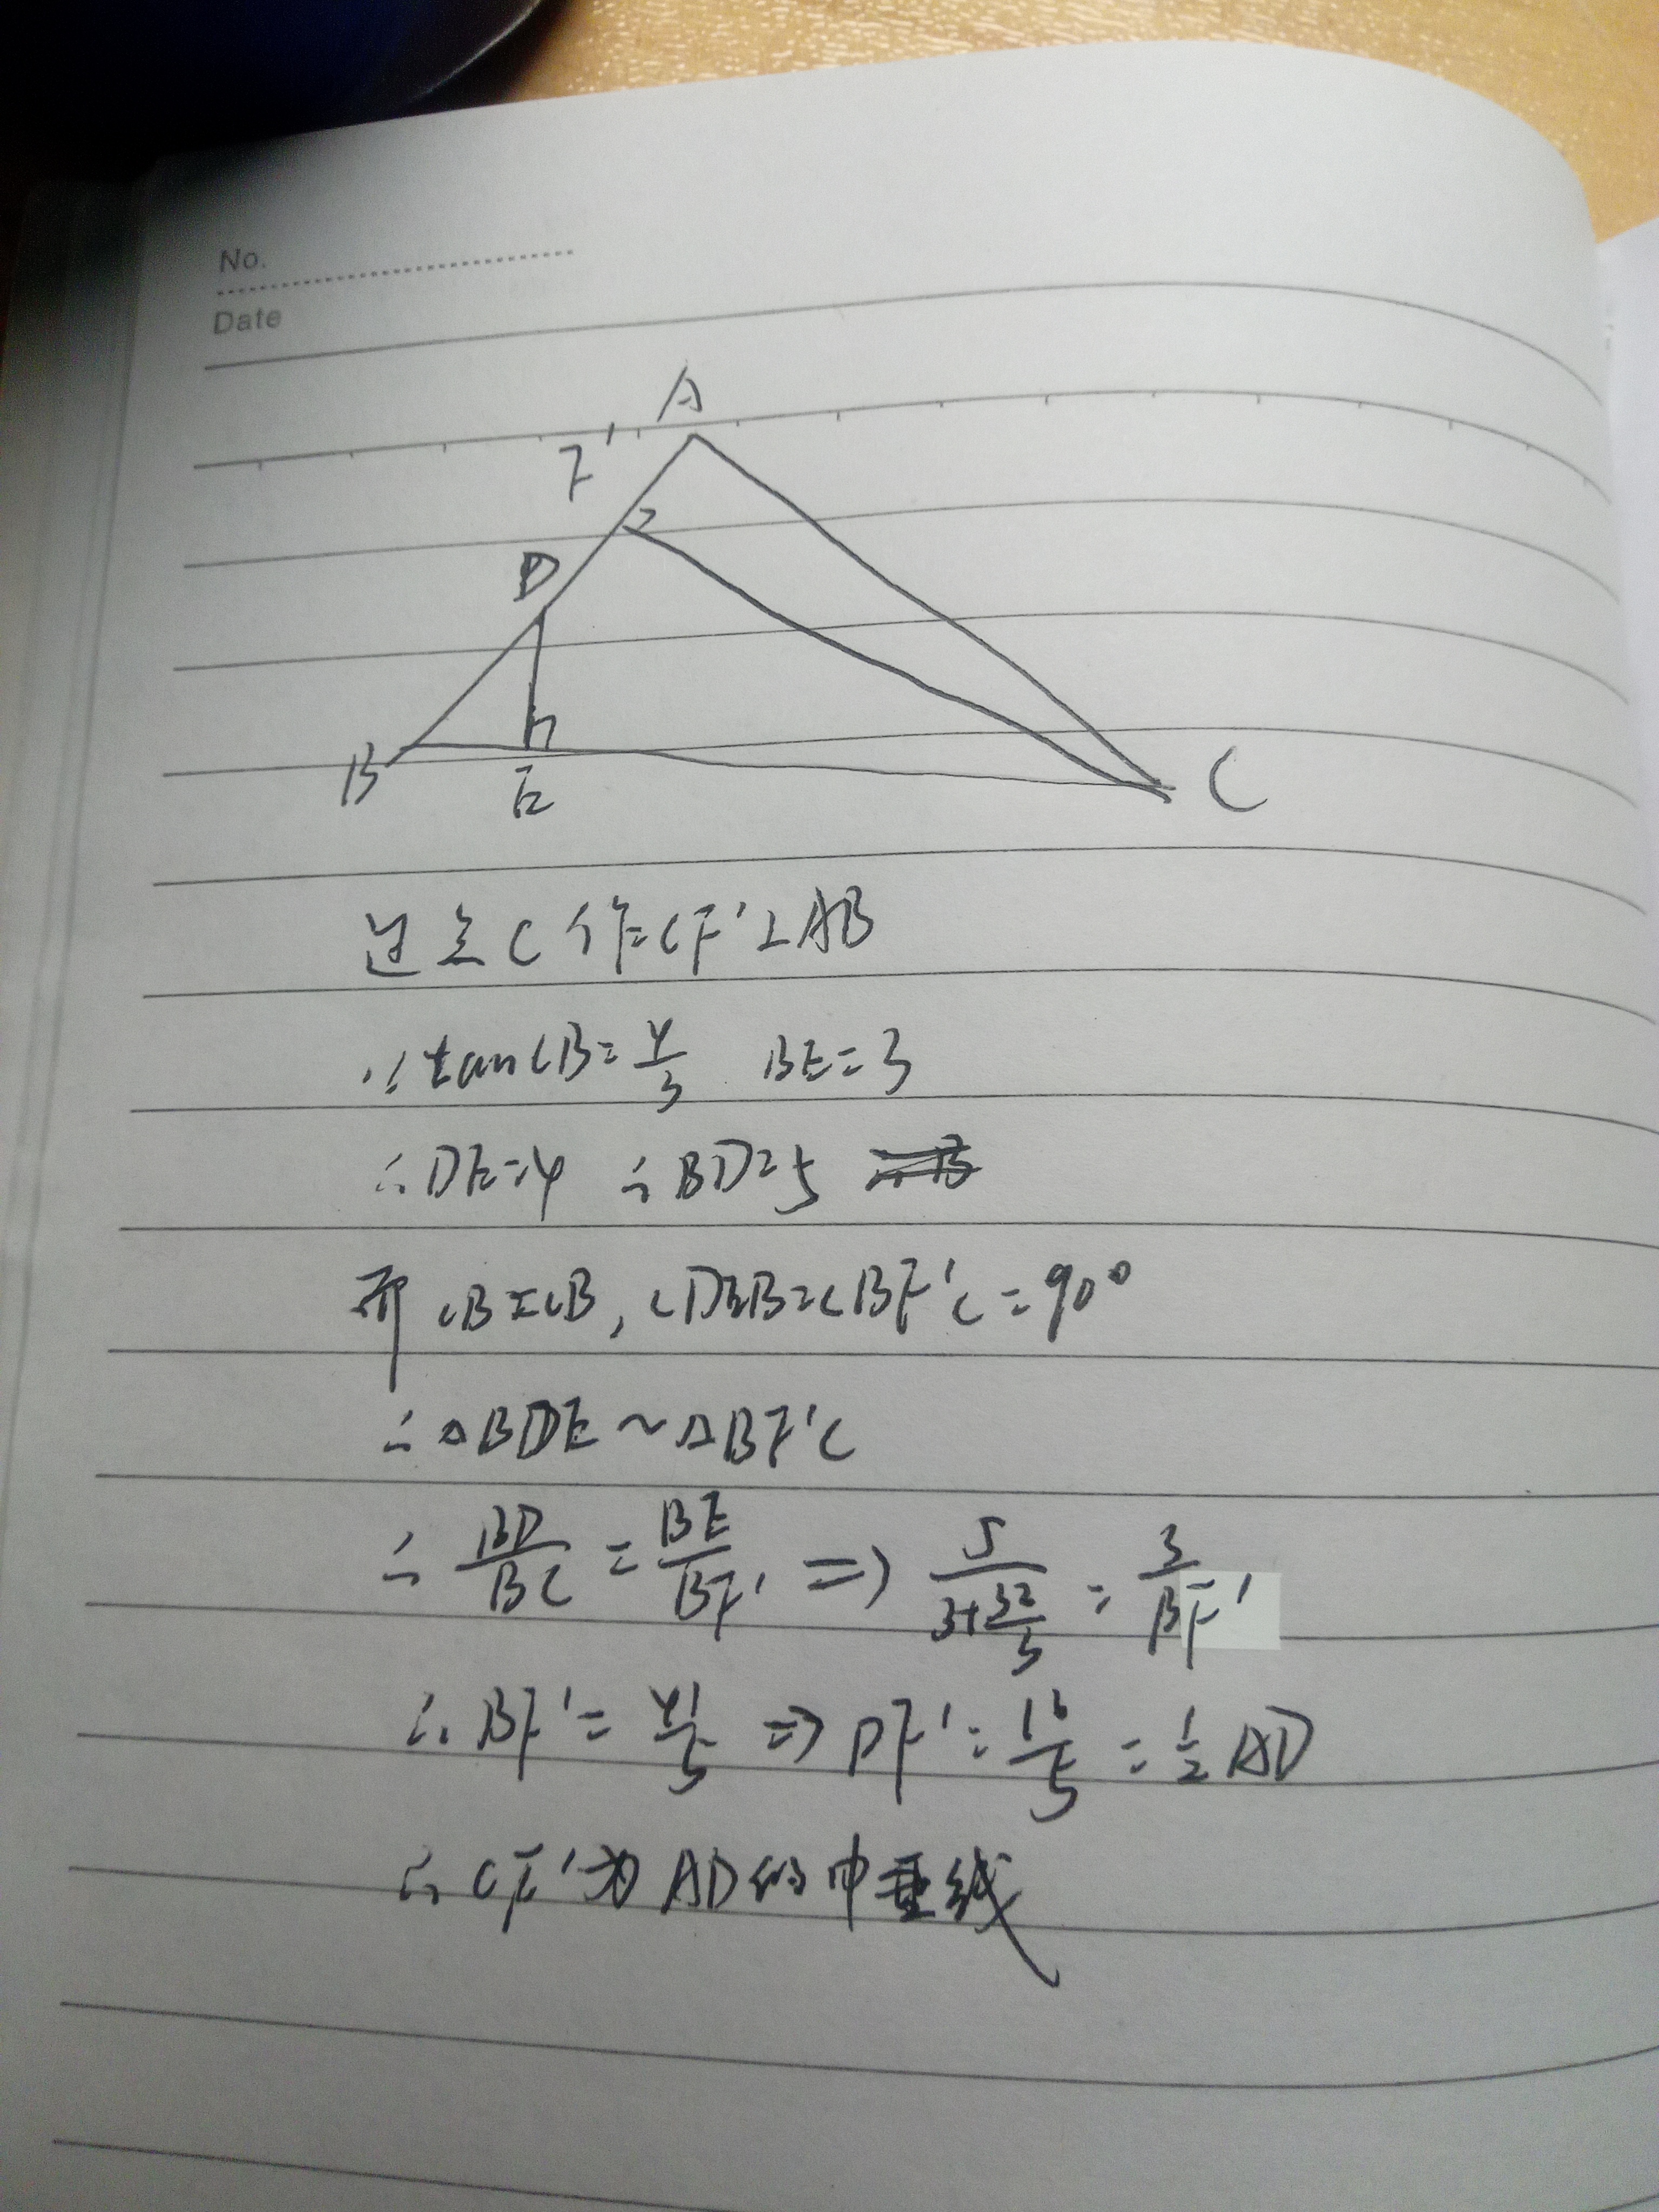 No.
Date
A
F'
D
B
E
C
过点C作CF'⊥AB
∵tan∠B=4/3 BE=3
∴DE=4 ∴BD=5
而∠B=∠B,∠DEB=∠BF'C=90°
∴△BDE~△BF'C
∴BD/BC=BE/BF'⇒5/(3+32/3)=3/BF'
∴BF'=41/5⇒DF'=16/5=1/2AD
∴CF'为AD的中垂线